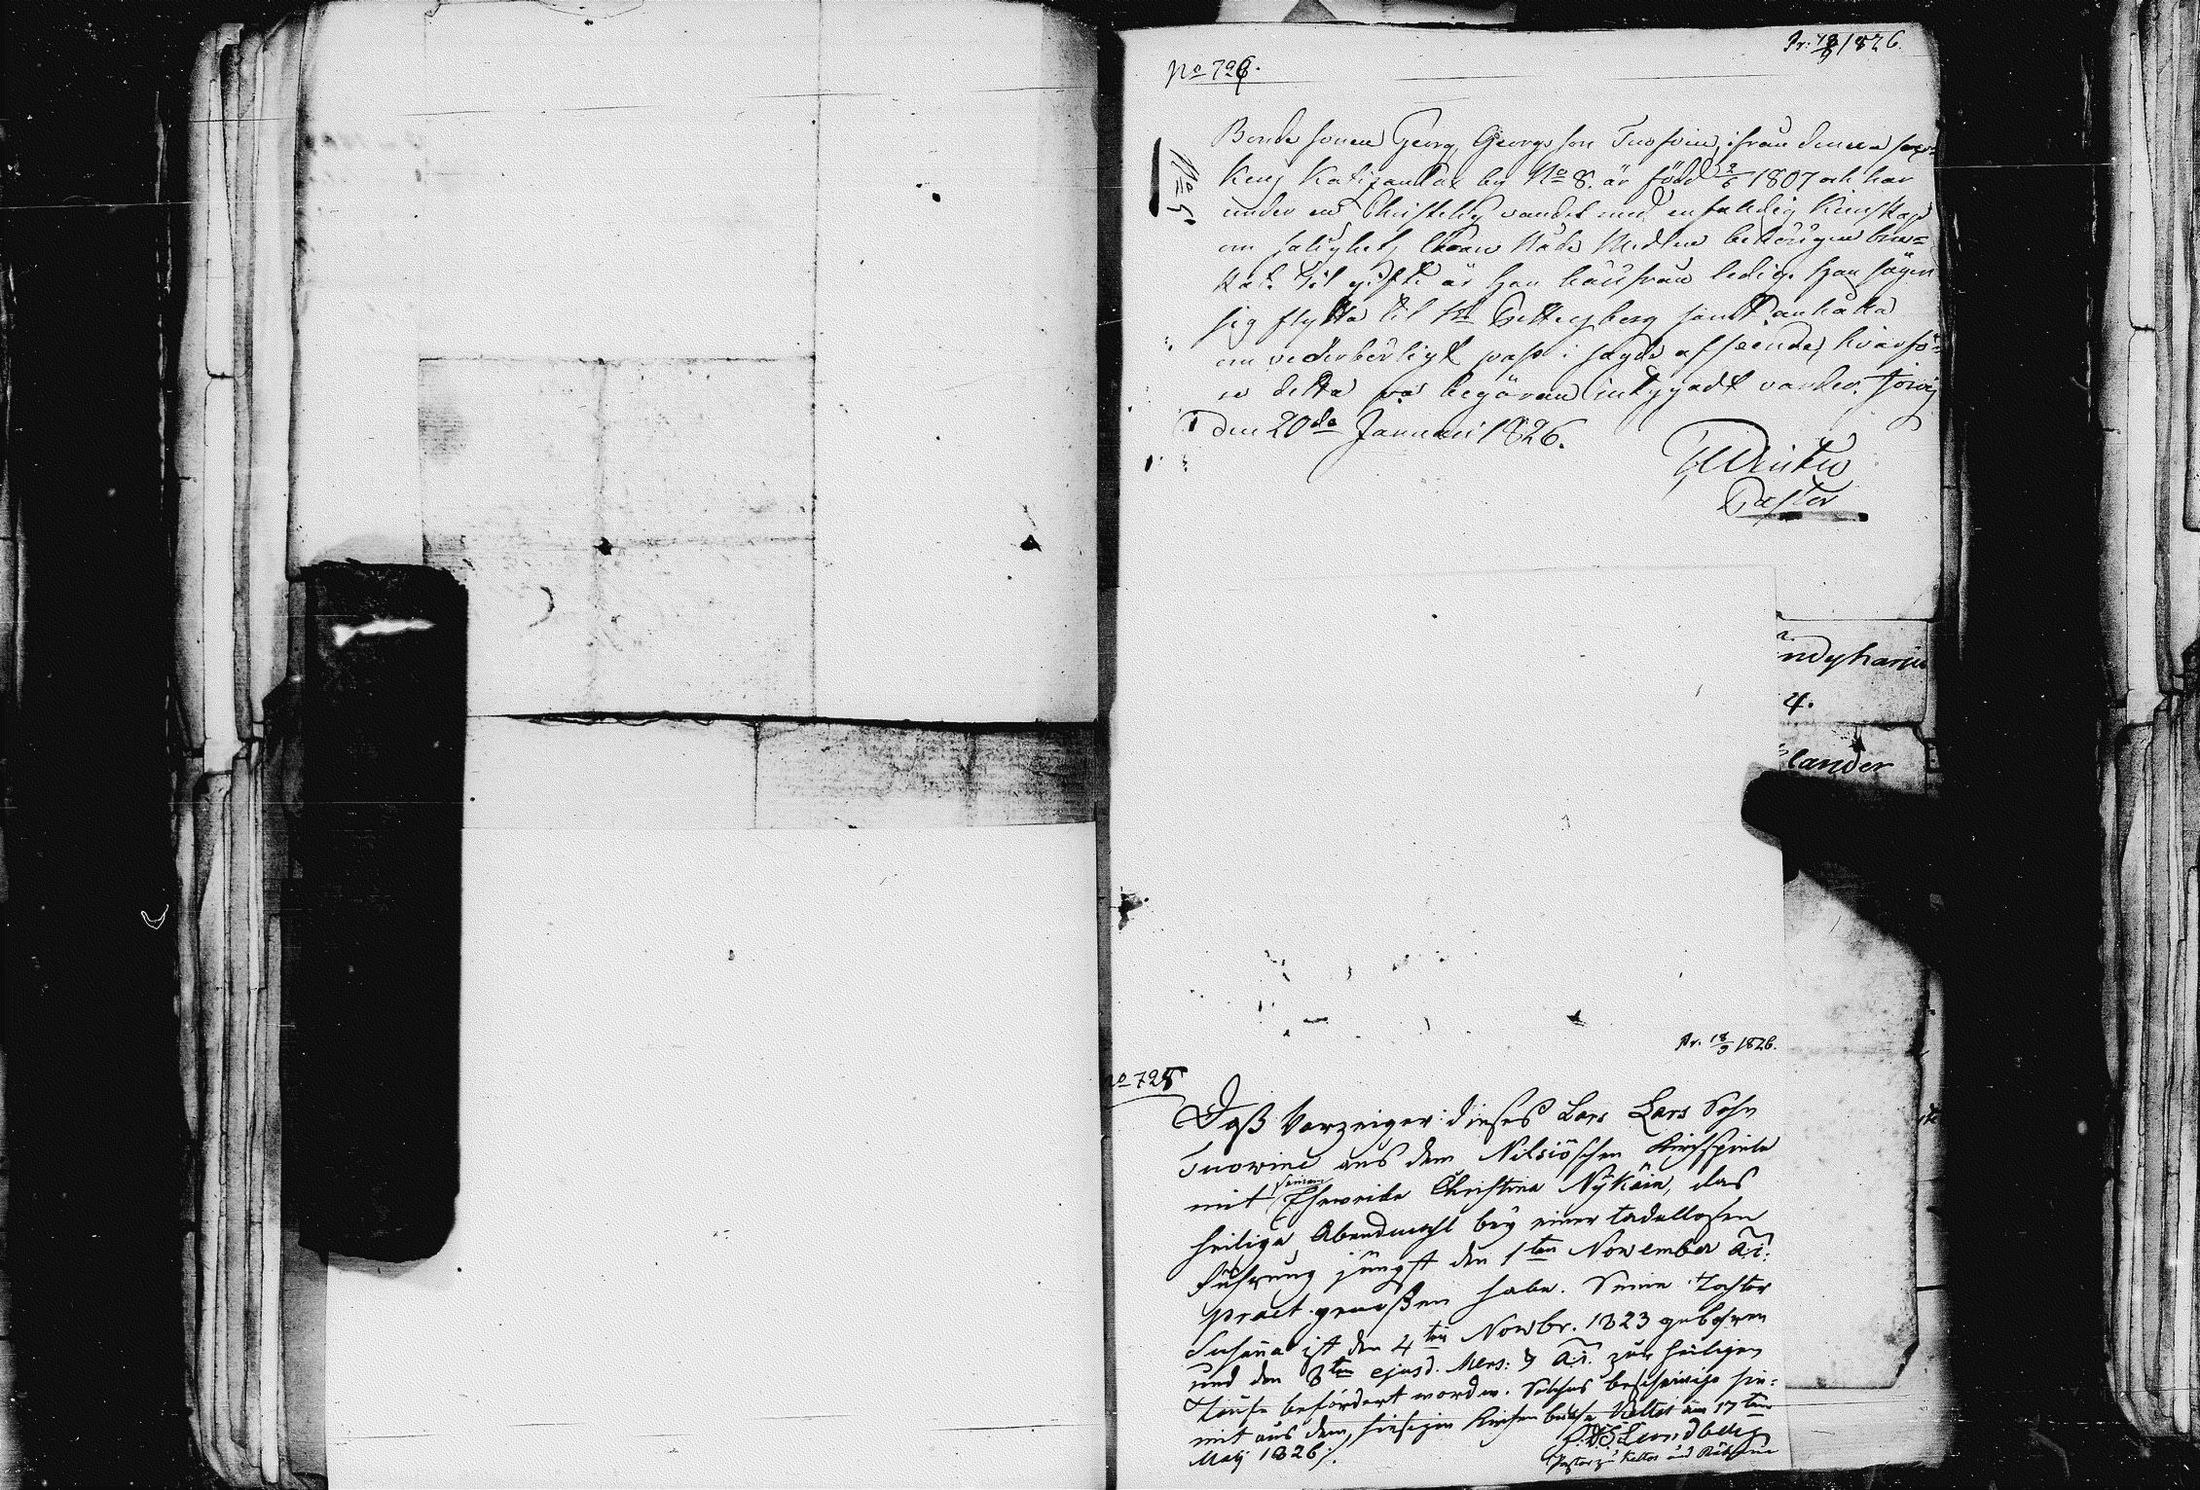 No 726.
Pr: 18/9 1826.
No 5.
Bonde sonen Georg Georgsson Tuovin, ifrån denna soc-
kens by No 8. är född 2/6 1807 och har
under en Christelig vandel med enfaldig Kunskap
om salighets läran Nåde Medlen behörigen bru-
kat. til gifte är han härifrån ledig. Han säger
sig flytta til St. Pettersberg samt anhålla
om vederbörligt pass i sagde afseende, hvarfö-
re detta på begäran intygadt varder.
den 20de Januari 1826.
Pastor
ndyharju
4.
lander
Pr. 18/9 1826.
No 725
Daß Vorzeiger dieses Lars Lars Sohn
Tuowine aus dem Nilsiöschen Kirchspiele
mit seinem Eheweibe Christina Nykäin, das
heilige Abendmahl bey einer tadellosen
Führung jüngst den 1ten November a.c.
praet. genoßen habe. Seine Tochter
Susanna ist den 4ten Novbr. 1823 gebohren
und den 8ten ejusd. Mens: & a.c. zur heiligen
Taufe befördert worden. Solches bescheinige hie-
mit aus dem hiesigen Kirchenbuche Keltos am 17ten
May 1826.
Lundberg
Pastor zu Keltos und